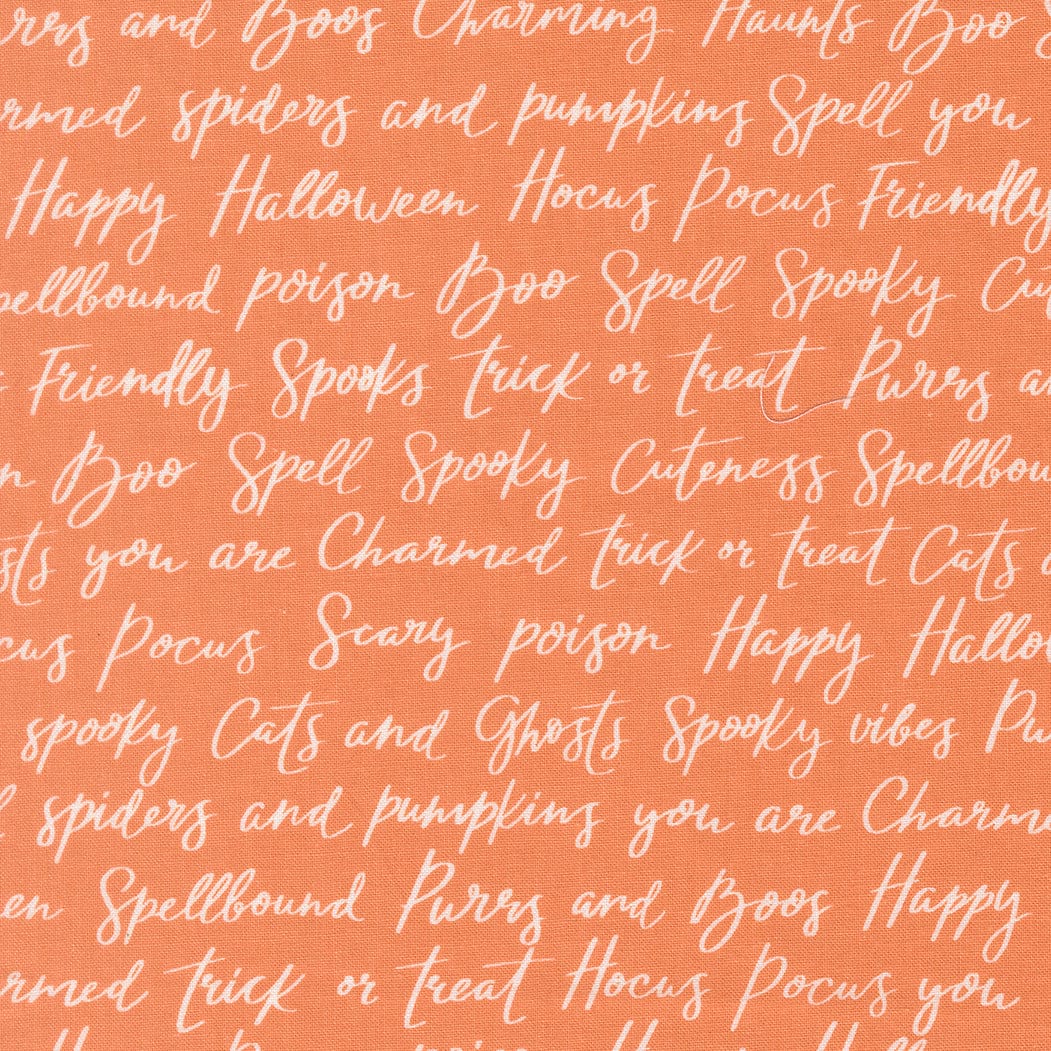 rrs and Boos Charming Haunts Boo
rmed spiders and pumpkins Spell you
Happy Halloween Hocus Pocus Friendly
pellbound poison Boo Spell Spooky Cut
Friendly Spooks trick or treat Purrs a
n Boo Spell Spooky Cuteness Spellbou
sts you are Charmed trick or treat Cats
cus Pocus Scary poison Happy Hallo
spooky Cats and Ghosts Spooky vibes Pu
spiders and pumpkins you are Charme
en Spellbound Purrs and Boos Happy
rmed trick or treat Hocus Pocus you